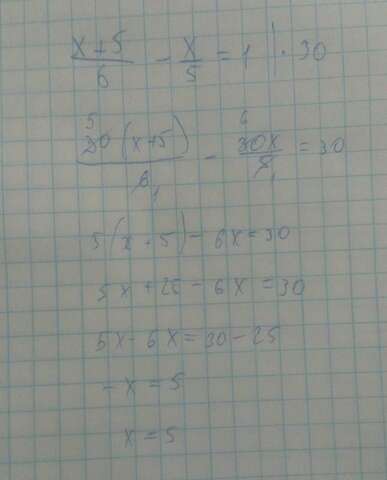 (x+5)/6 - x/5 = 1 | · 30
30(x+5)/6 - 30x/5 = 30
5(x+5) - 6x = 30
5x + 25 - 6x = 30
5x - 6x = 30 - 25
-x = 5
x = 5